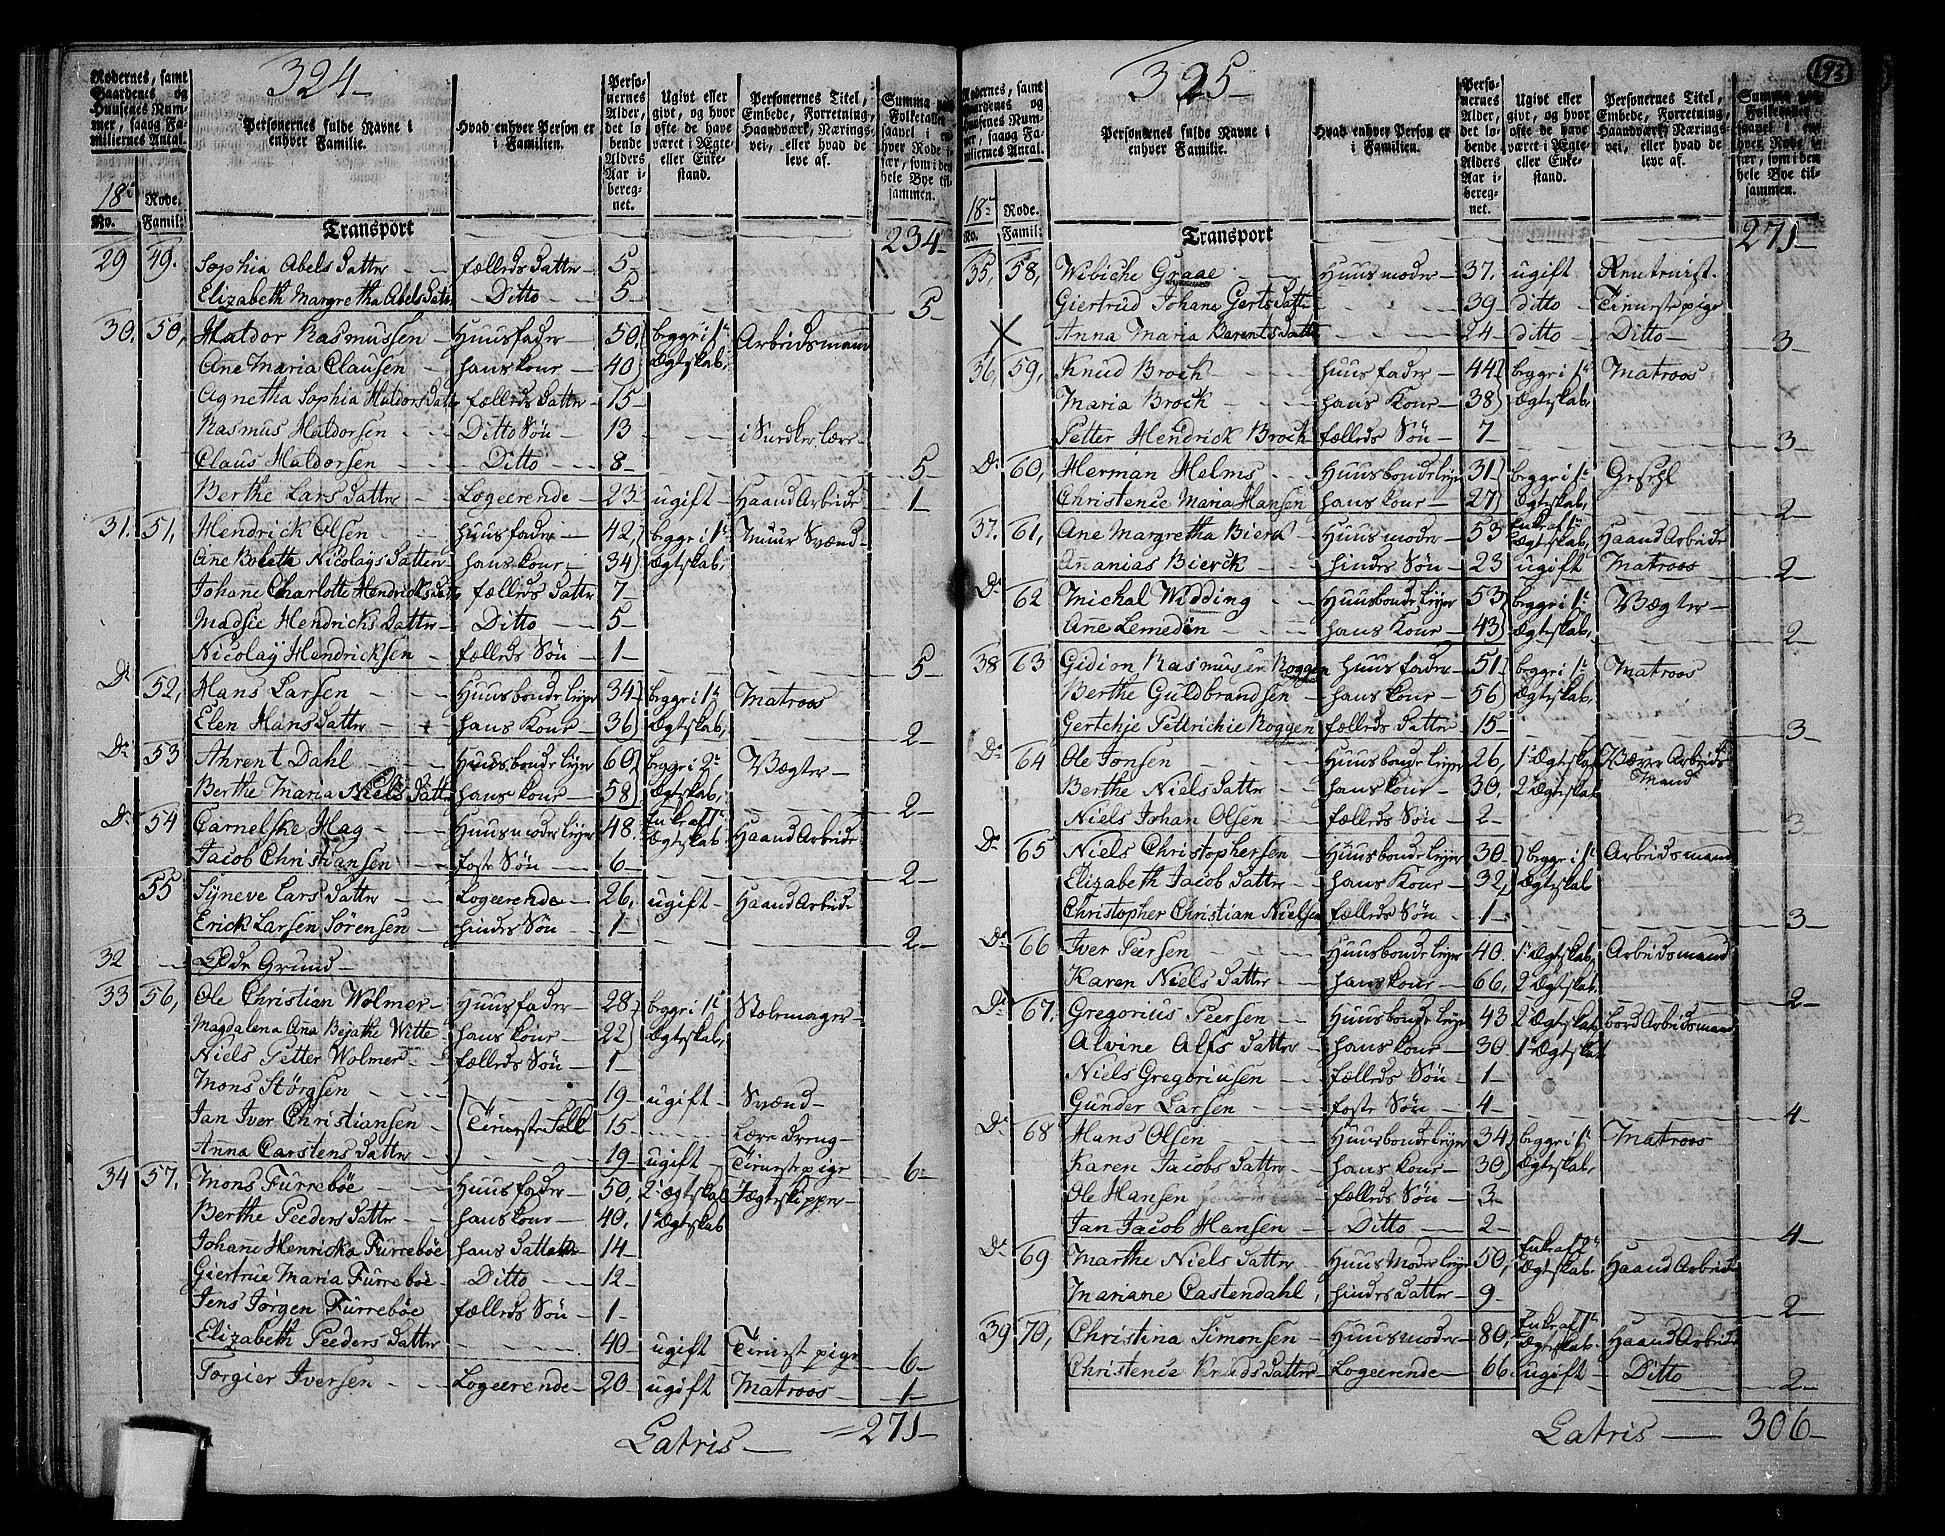 324
Rodernes, samt Gaardenes og Huusenes Nummer, saaog Familiernes Antal.
Personernes fulde Navne i enhver Familie.
Hvad enhver Person er i Familien.
Personernes Alder, det løbende Alders Aar iberegnet.
Ugivt eller givt, og hvor ofte de have været i Ægte- eller Enkestand.
Personernes Titel, Embede, Forretning, Haandværk, Næringsvei, eller hvad de leve af.
Summa paa Folketallet saavel i enhver Rode især, som i den hele Bye tilsammen.
18de Rode.
No. Famil:
Transport 234
29 49. Sophia Abels Datter fælleds Datter 5
Elizabeth Margretha Abels Datr Ditto 5 5
30. 50, Haldor Rasmussen Huusfader 50 begge i 1te Arbeidsmand
Ane Maria Clausen hans kone 40 Ægteskab,
Agnetha Sophia Haldors Datr fælleds Datter 15
Rasmus Haldorsen Ditto Søn 13 i Snedker lære
Claus Haldorsen Ditto 8 5
Berthe Lars Datter Logeerende 23 ugift Haand Arbeide 1
31. 51, Hendrick Olsen huusfader 42, begge i 1te Muur Svend
Ane Boleth Nicolays Datter hans kone 34 Ægteskab,
Johane Charlotte Hendricks Datr fælleds Datter 7
Madsie Hendricks Datter Ditto 5
Nicolaÿ Hendricksen fælleds Søn 1 5
Do 52, Hans Larsen Huusbonde leyer 34 begge i 1te Matroos
Elen Hans Datter hans Kone 36 Ægteskab, 2
Do 53 Ahrent Dahl Huusbonde leyer 60 begge i 2de Vægter
Berthe Maria Niels Datter hans kone 58 Ægteskab, 2
Do 54 Carnelske Hag Huusmoder leyer 48. Enke af 1te Ægteskab Haand Arbeide
Jacob Christiansen foster Søn 6 2
55 Syneve Lars Datter Logeerende 26, ugift Haand Arbeide
Erick Larsen Sørensen hindes Søn 1 2
32 Øde Grund
33 56, Ole Christian Wolmer Huusfader 28 begge i 1te Stolemager
Magdalena Ana Bejathe Witte hans kone 22 Ægteskab,
Niels Petter Wolmer fælleds Søn 1
Mons Størgsen 19 ugift Svend
Jan Iver Christiansen Tieneste Folk 15 Lære dreng
Anna Carstens Datter 19 ugift Tieneste pige 6
34 57. Mons Furreböe Huusfader 50, 2det Ægteskab Jægteskipper
Berthe Peeders Datter hans kone 40, 1te Ægteskab
Johane Henricka Furreböe hans Datter 14
Giertrue Maria Furreböe Ditto 12
Jens Jørgen Furreböe fælleds Søn 1
Elizabeth Peeders Datter 40 ugift Tienest pige 6
Torgier Iversen Logeerende 20 ugift Matroos 1
Latris 271
325
193
Rodernes, samt Gaardenes og Huusenes Nummer, saaog Familiernes Antal.
Personernes fulde Navne i enhver Familie.
Hvad enhver Person er i Familien.
Personernes Alder, det løbende Alders Aar iberegnet.
Ugivt eller givt, og hvor ofte de have været i Ægte- eller Enkestand.
Personernes Titel, Embede, Forretning, Haandværk, Næringsvei, eller hvad de leve af.
Summa paa Folketallet saavel i enhver Rode især, som i den hele Bye tilsammen.
18de Rode.
No. Famil:
Transport 271
35, 58, Wibiche Graae Huusmoder 37. ugift
Giertrud Johane Gerts Datter 39 ditto Tieneste pige
Anna Maria Barents Datter 24 ditto Ditto 3
36 59, Knud Brock huusfader 44 begge i 1te Matroos
Maria Brock hans Kone 38 Ægteskab,
Petter Hendrick Brock fælleds Søn 7 3
Do 60, Herman Helms Huusbonde leyer 31 begge i 1te Gesell
Christence Maria Hansen hans kone 27 Ægteskab, 2
37. 61, Ane Margretha Bierck Huusmoder 53 Enke af 1te Ægteskab, Haand Arbeide
Ananias Bierck hindes Søn 23 ugift Matroos 2
Do 62 Michal Widding Huusbonde leyer 53 begge i 1te Vægter
Ane Lemedøn hans Kone 43 Ægteskab, 2
38 63 Gidion Rasmusen Roggen huusfader 51 begge i 1te Matroos
Berthe Guldbrandsen hans kone 56 Ægteskab,
Gertchje Petterichie Roggen fælleds Datter 15 3
Do 64 Ole Jonsen Huusbonde leyer 26, 1te Ægteskab Arbeids Mand
Berthe Niels Datter hans kone 30, 2de Ægteskab
Niels Johan Olsen fælleds Søn 2 3
Do 65 Niels Christophersen Huusbonde leyer 30 begge i 1te Arbeidsmand
Elizabeth Jacob Datter hans Kone 32, Ægteskab
Christopher Christian Nielsen fælleds Søn 1 3
Do 66 Iver Peersen Huusbonde leyer 40. 1te Ægteskab, Arbeidsmand
Karen Niels Datter hans kone 66, 2de Ægteskab. 2
Do 67. Gregorius Peersen Huusbonde leyer 43 2de Ægteskab Bord Arbeidsmand
Alvine Alfs Datter hans kone 30 1te Ægteskab
Niels Gregoriusen fælleds Søn 1
Gunder Larsen foster Søn 4 4
Do 68 Hans Olsen Huusbonde leyer 34 begge i 1te Matroos
Karen Jacobs Datter hans kone 30 Ægteskab,
Ole Hansen fælleds Søn 3
Jan Jacob Hansen Ditto 2 4
Do 69 Marthe Niels Datter Huus Moder leyer 50, Enke af 2de Ægteskab. Haand Arbeide
Mariane Castendahl, hindes Datter 9 2
39 70, Christina Simonsen Huusmoder 80, Enke af 1te Ægteskab. Haand Arbeide
Christence Knuds Datter Logeerende 66 ugift Ditto 2
Latris 306